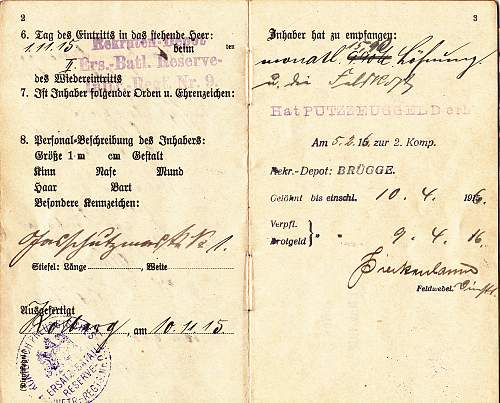 2
6. Tag des Eintritts in das stehende Heer:
1.11.15 beim
Rekruten-Depot
II Ers.-Batl. Reserve-
des Wiedereintritts
Nr. 9.
7. Ist Inhaber folgender Orden u. Ehrenzeichen:
8. Personal-Beschreibung des Inhabers:
Größe 1 m cm Gestalt
Kinn Nase Mund
Haar Bart
Besondere Kennzeichen:
Gasschutzmaske No 1.
Stiefel: Länge, Weite
Ausgefertigt
Kolberg, am 10.11.15
ERSATZ-BATAILL
RESERVE-
3
Inhaber hat zu empfangen:
monatl. Löhnung
u. die Feldkost
Hat PUTZZEUGGELD erh
Am 5.2.16 zur 2. Komp.
Rekr.-Depot: BRÜGGE.
Gelöhnt bis einschl. 10.4.1916.
Verpfl.
Brotgeld } " " 9.4.16
Feldwebel.